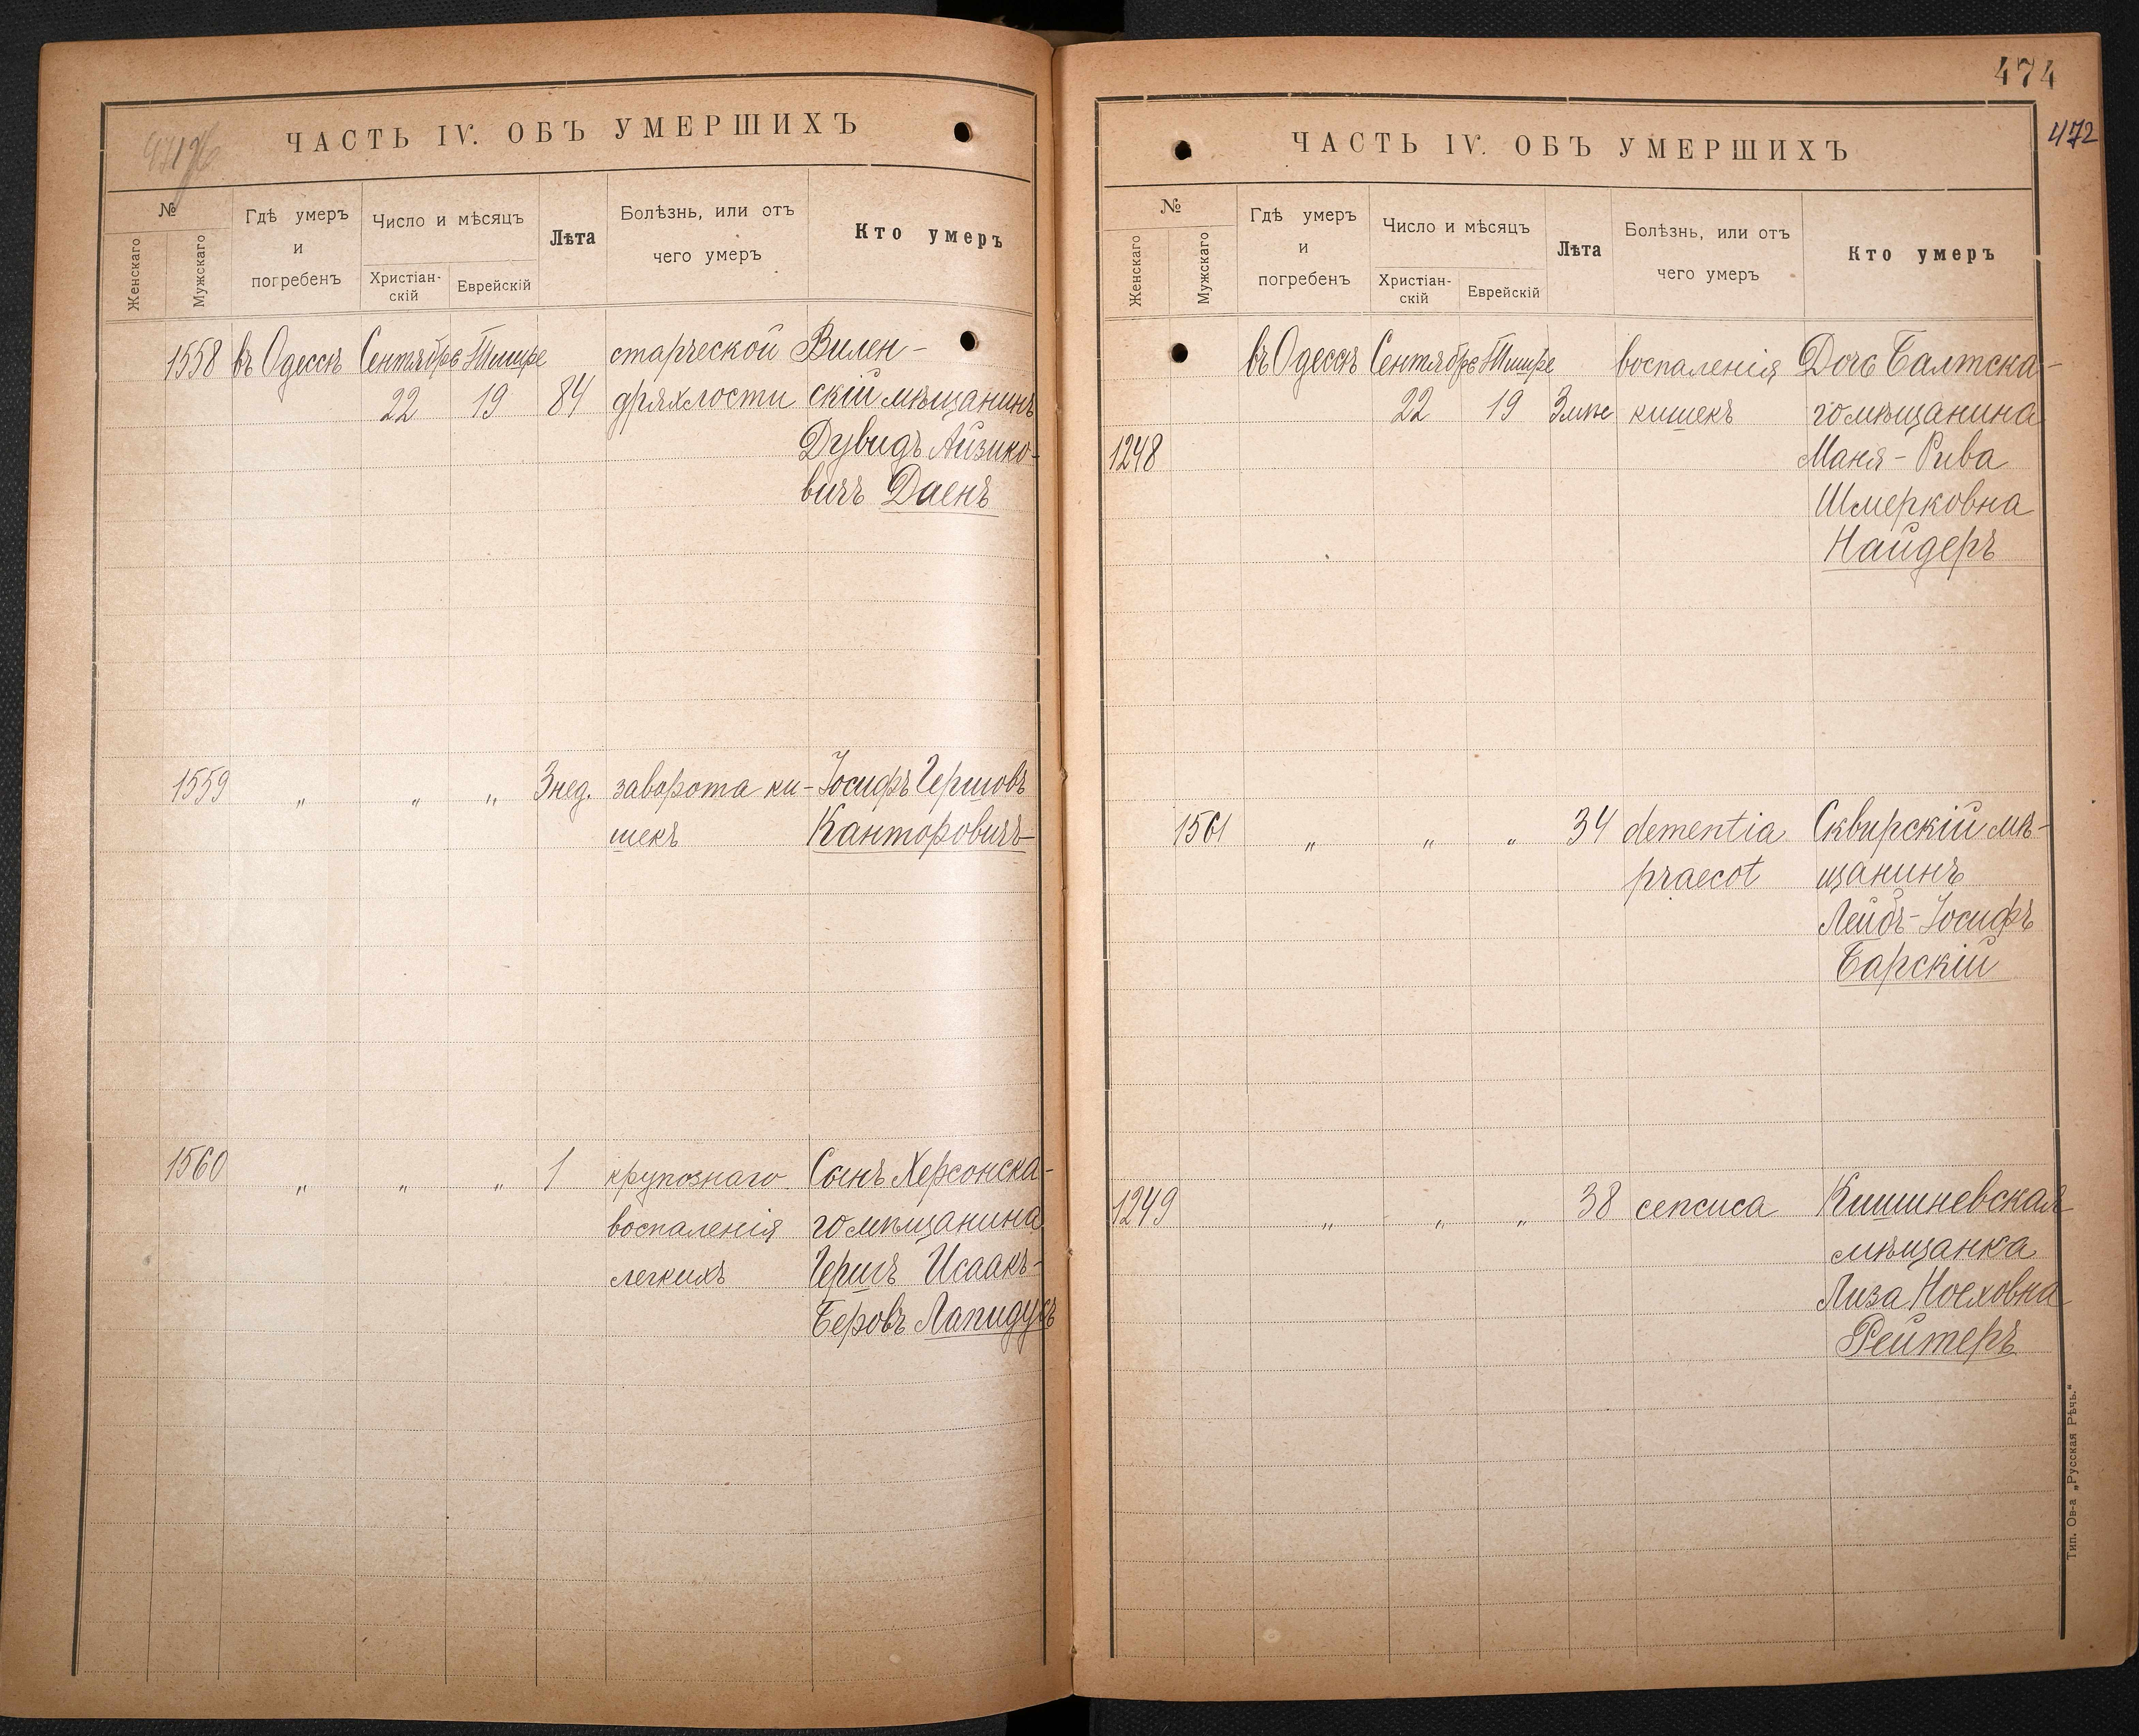 ЧАСТЬ IV. ОБЪ УМЕРШИХЪ
№
Женскаго
Мужскаго
Гдѣ умеръ
и
погребенъ
Число и мѣсяцъ
Христіан-
скій
Еврейскій
Лѣта
Болѣзнь, или отъ
чего умеръ
Кто умеръ
1558 въ Одессѣ Сентябрь Тишре старческой Вилен-
22 19 84 дряхлости скій мѣщанинъ
Дувидъ Айзико-
вичъ Даенъ
1559 „ „ „ 3 нед. заворота ки- Іосифъ Гершовъ
шекъ Канторовичъ
1560 „ „ „ 1 крупознаго Сынъ Херсонска-
воспаленія го мѣщанина
легкихъ Гершъ Исаакъ-
Беровъ Лапидусъ
474
472
ЧАСТЬ IV. ОБЪ УМЕРШИХЪ
№
Женскаго
Мужскаго
Гдѣ умеръ
и
погребенъ
Число и мѣсяцъ
Христіан-
скій
Еврейскій
Лѣта
Болѣзнь, или отъ
чего умеръ
Кто умеръ
въ Одессѣ Сентябрь Тишре воспаленія Дочь Балтска-
22 19 кишекъ го мѣщанина
1248 Маня-Рива
Шмерковна
Найдеръ
1561 „ „ „ 34 dementia Сквирскій мѣ-
praecot щанинъ
Лейбъ-Іосифъ
Барскій
1249 „ „ „ 38 сепсиса Кишиневская
мѣщанка
Лиза Ноеховна
Рейтеръ
Тип. Ов-а „Русская Рѣчь.“